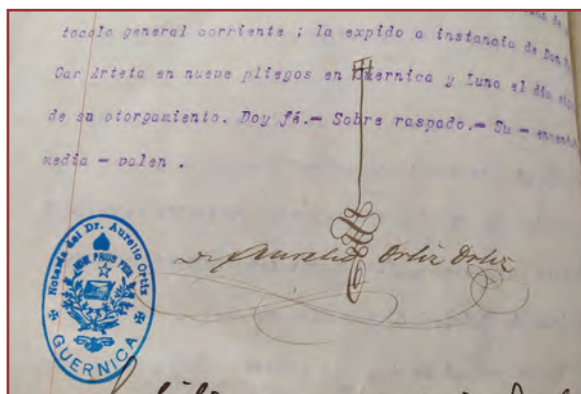 tocolo general corriente ; la expido a instancia de Don
Car Arteta en nueve pliegos en Guernica y Luno el día
de su otorgamiento. Doy fé.— Sobre raspado.— Su —
media — valen .
Dr Aurelio Ortiz Ortiz
Notaria del Dr. Aurelio Ortiz
NIHIL PRIUS FIDE
GUERNICA